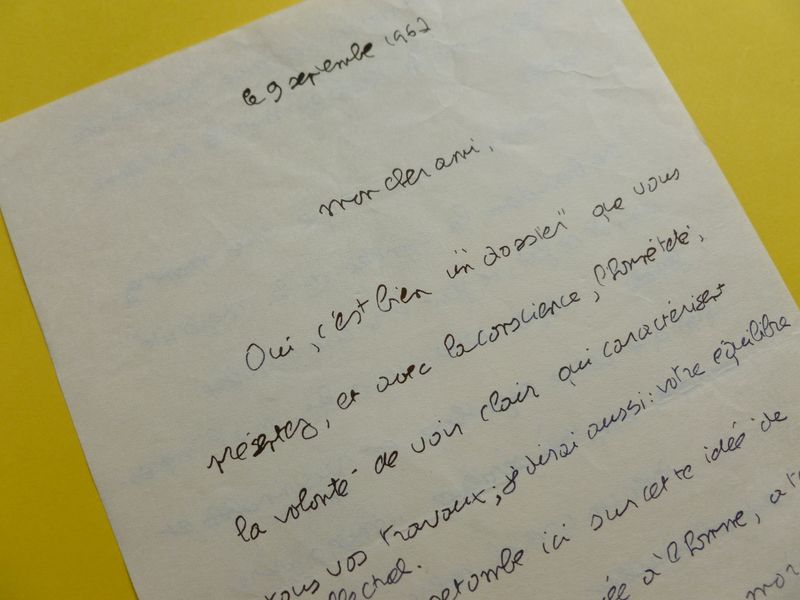 le 9 septembre 1962
mon cher ami,
Oui, c'est bien un "dossier" que vous
présentez, et avec la conscience, l'honnêteté,
la volonté de voir clair qui caractérisent
tous vos travaux; je dirai aussi: votre équilibre
retombe ici sur cette idée de
à l'homme, a